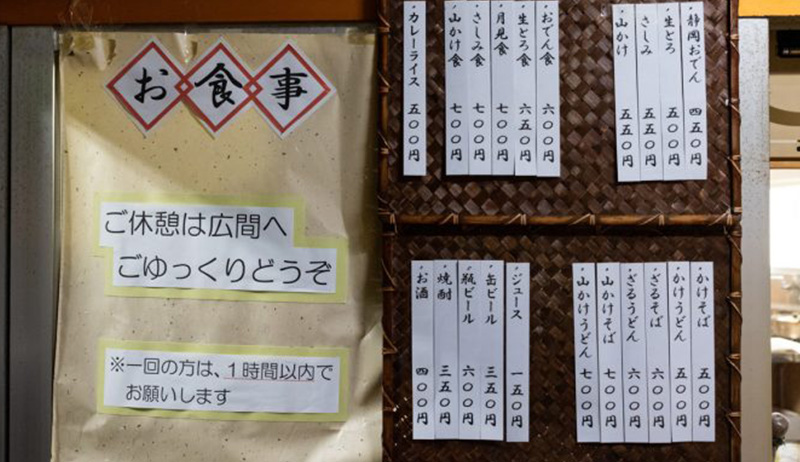 お食事
ご休憩は広間へ
ごゆっくりどうぞ
※一回の方は、1時間以内で
お願いします
静岡おでん 四五〇円
生とろ 五五〇円
さしみ 五五〇円
山かけ 五五〇円
おでん食 六〇〇円
生とろ食 六五〇円
月見食 七〇〇円
さしみ食 七〇〇円
山かけ食 七〇〇円
カレーライス 五〇〇円
かけそば 五〇〇円
かけうどん 五〇〇円
ざるそば 六〇〇円
ざるうどん 六〇〇円
山かけそば 七〇〇円
山かけうどん 七〇〇円
ジュース 一五〇円
缶ビール 三五〇円
瓶ビール 六〇〇円
焼酎 三五〇円
お酒 四〇〇円